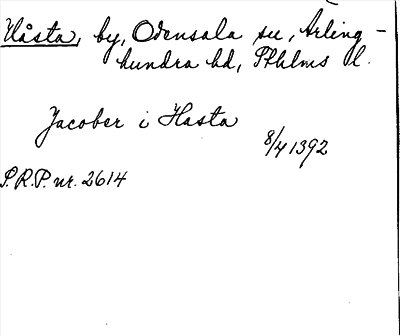 Håsta, by, Odensala sn, Ärling-
hundra hd, Sthlms l.
Jacober i Hasta
8/4 1392
S.R.P. nr. 2614